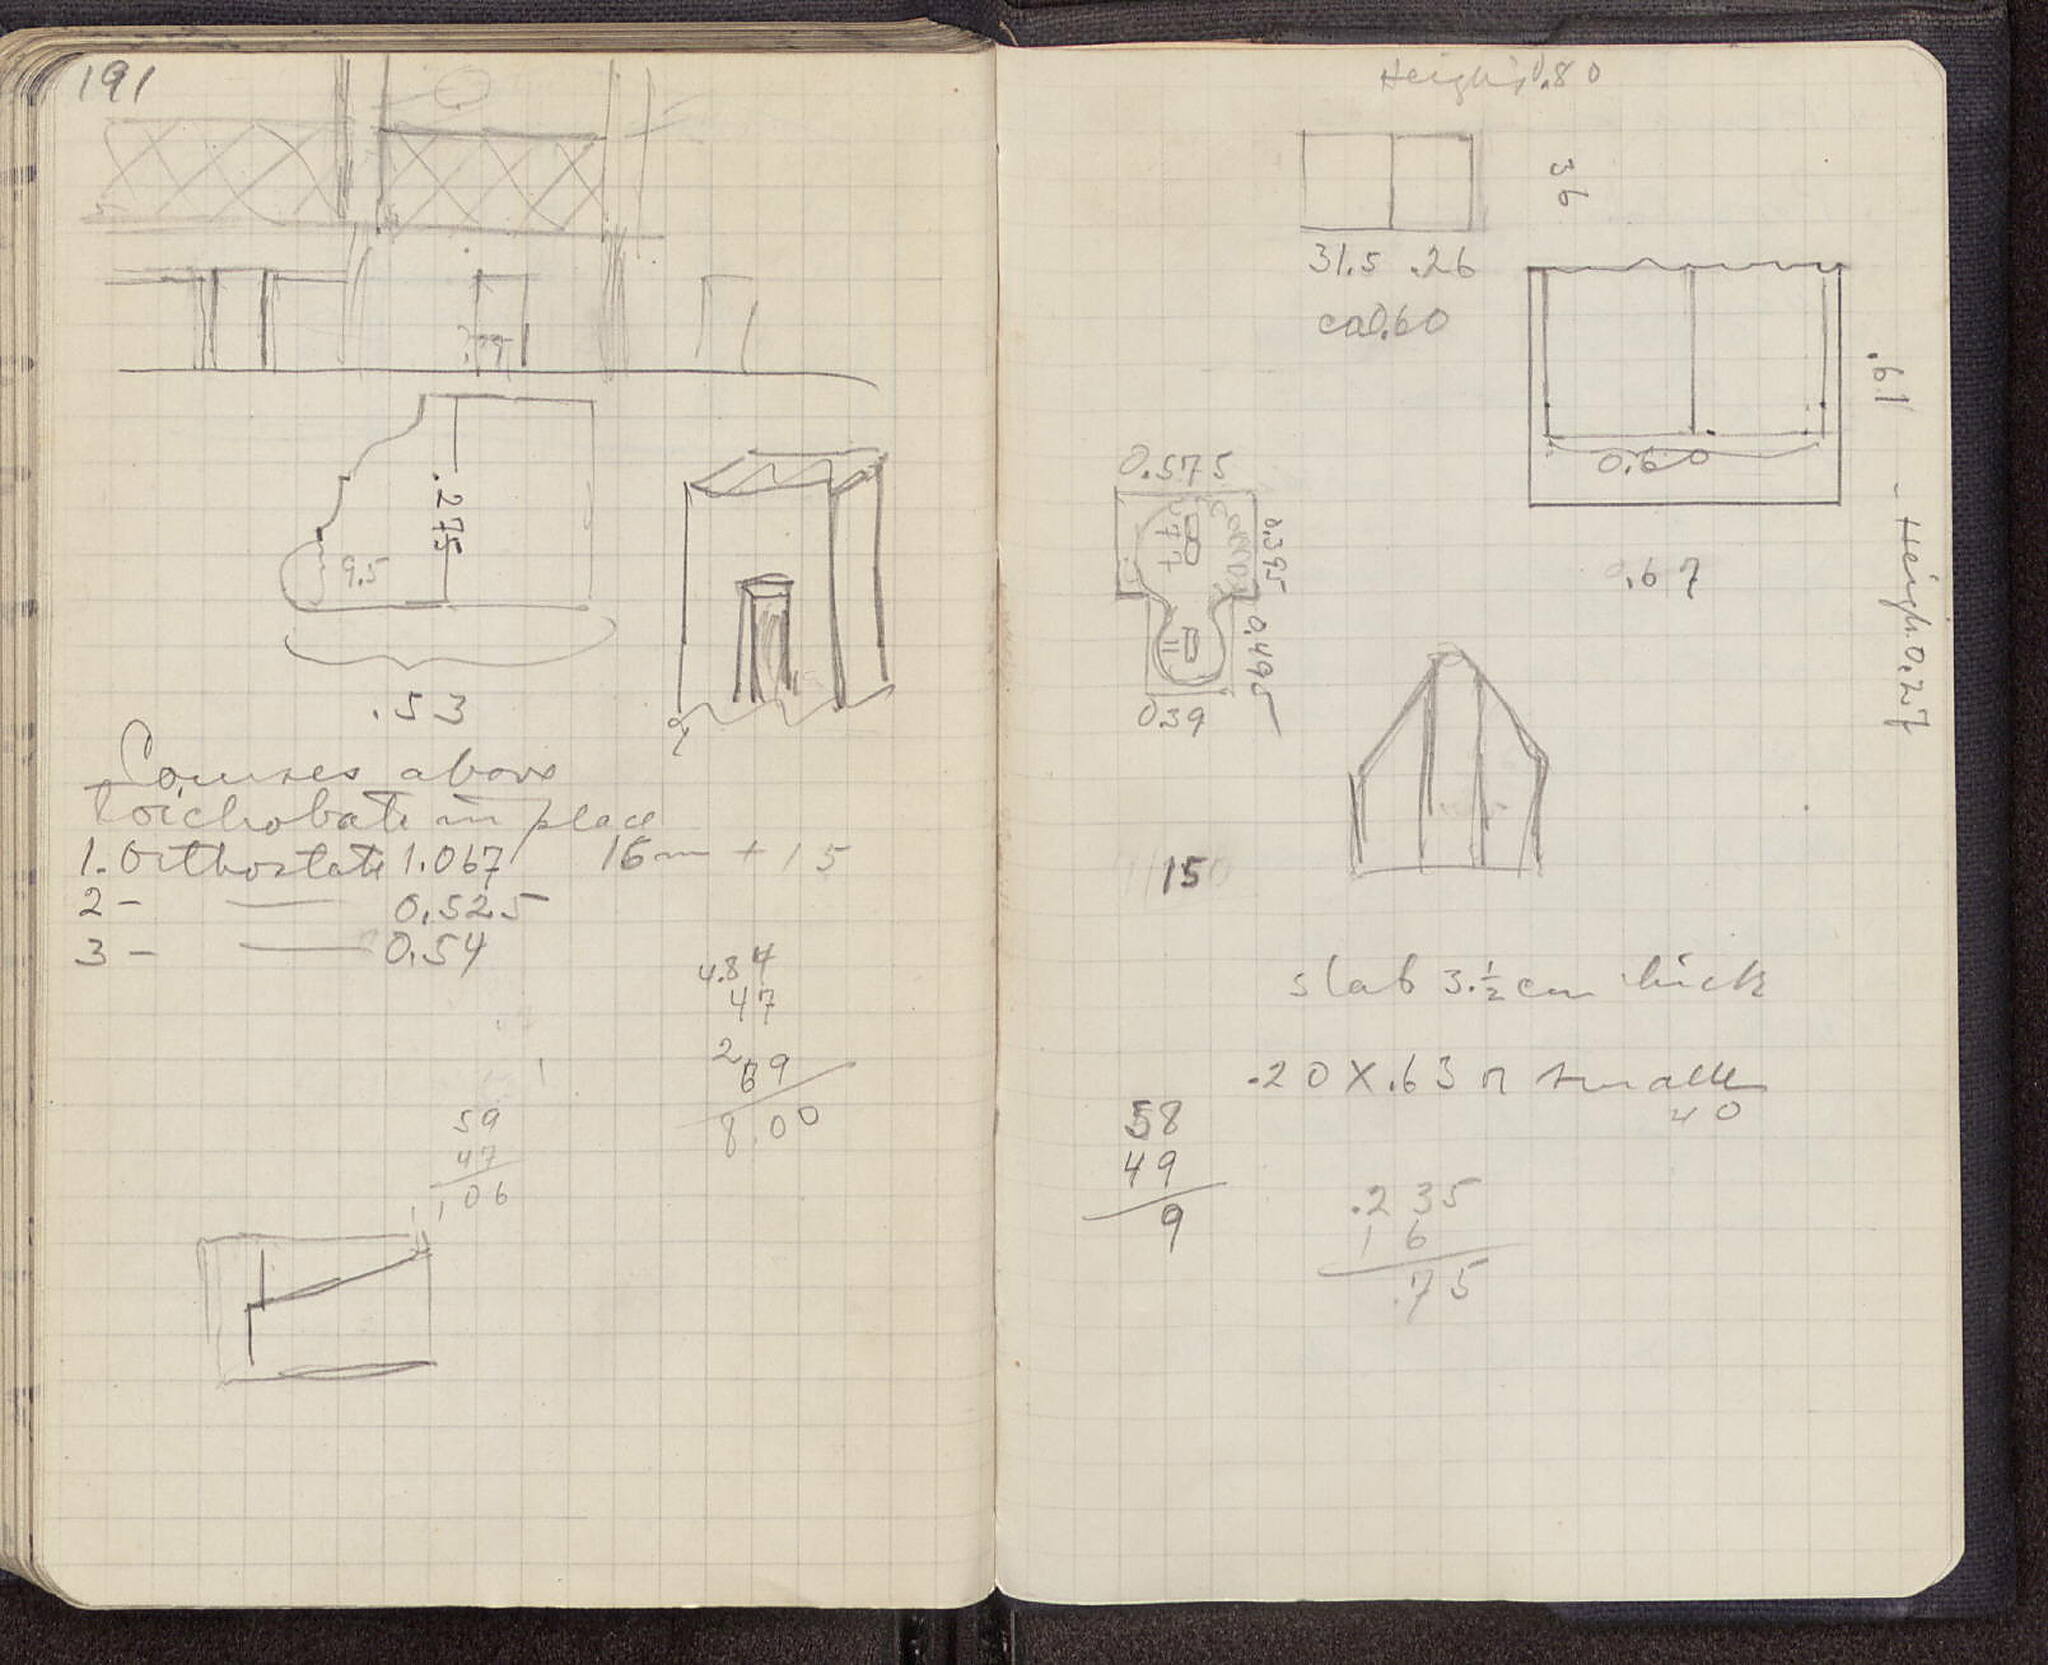 191
.275
9.5
.53
Courses above
toichobate in place
1. Orthostate 1.067 16m + 15
2 - — 0.525
3 - — 0.54
4.84
47
2
69
8.00
59
47
106
Height 0.80
36
31.5 .26
ca 0.60
.61 - Heigh. 0.27
0.60
.67
0.575
0.395
7
7
11
0.495
0.39
15
slab 3.½ cm thick
.20 X .63 n smaller
40
58
49
9
.235
16
.75